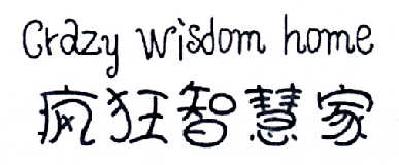 Crazy wisdom home
疯狂智慧家